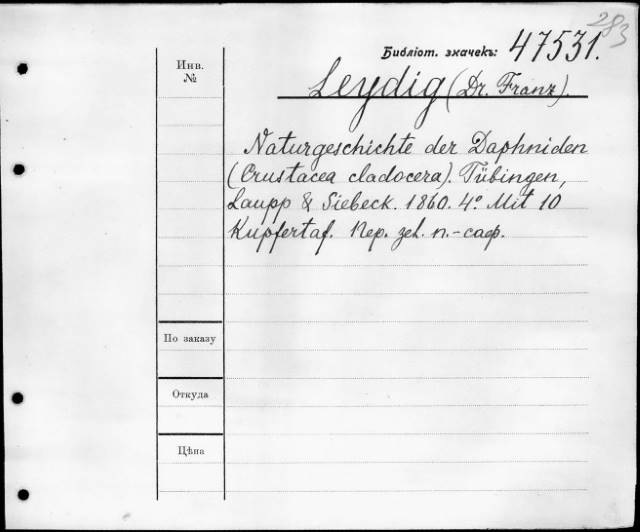 283
Библіот. значекъ: 47531.
Инв.
№
Leydig (Dr. Franz).
Naturgeschichte der Daphniden
(Crustacea cladocera). Tübingen,
Laupp & Siebeck. 1860. 4º Mit 10
Kupfertaf. Пер. зел. п.-саф.
По заказу
Откуда
Цѣна